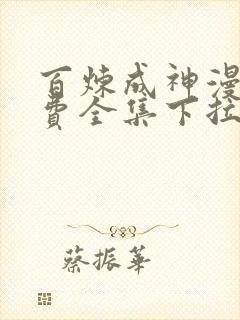 百炼成神漫
费全集下拉
蔡振華